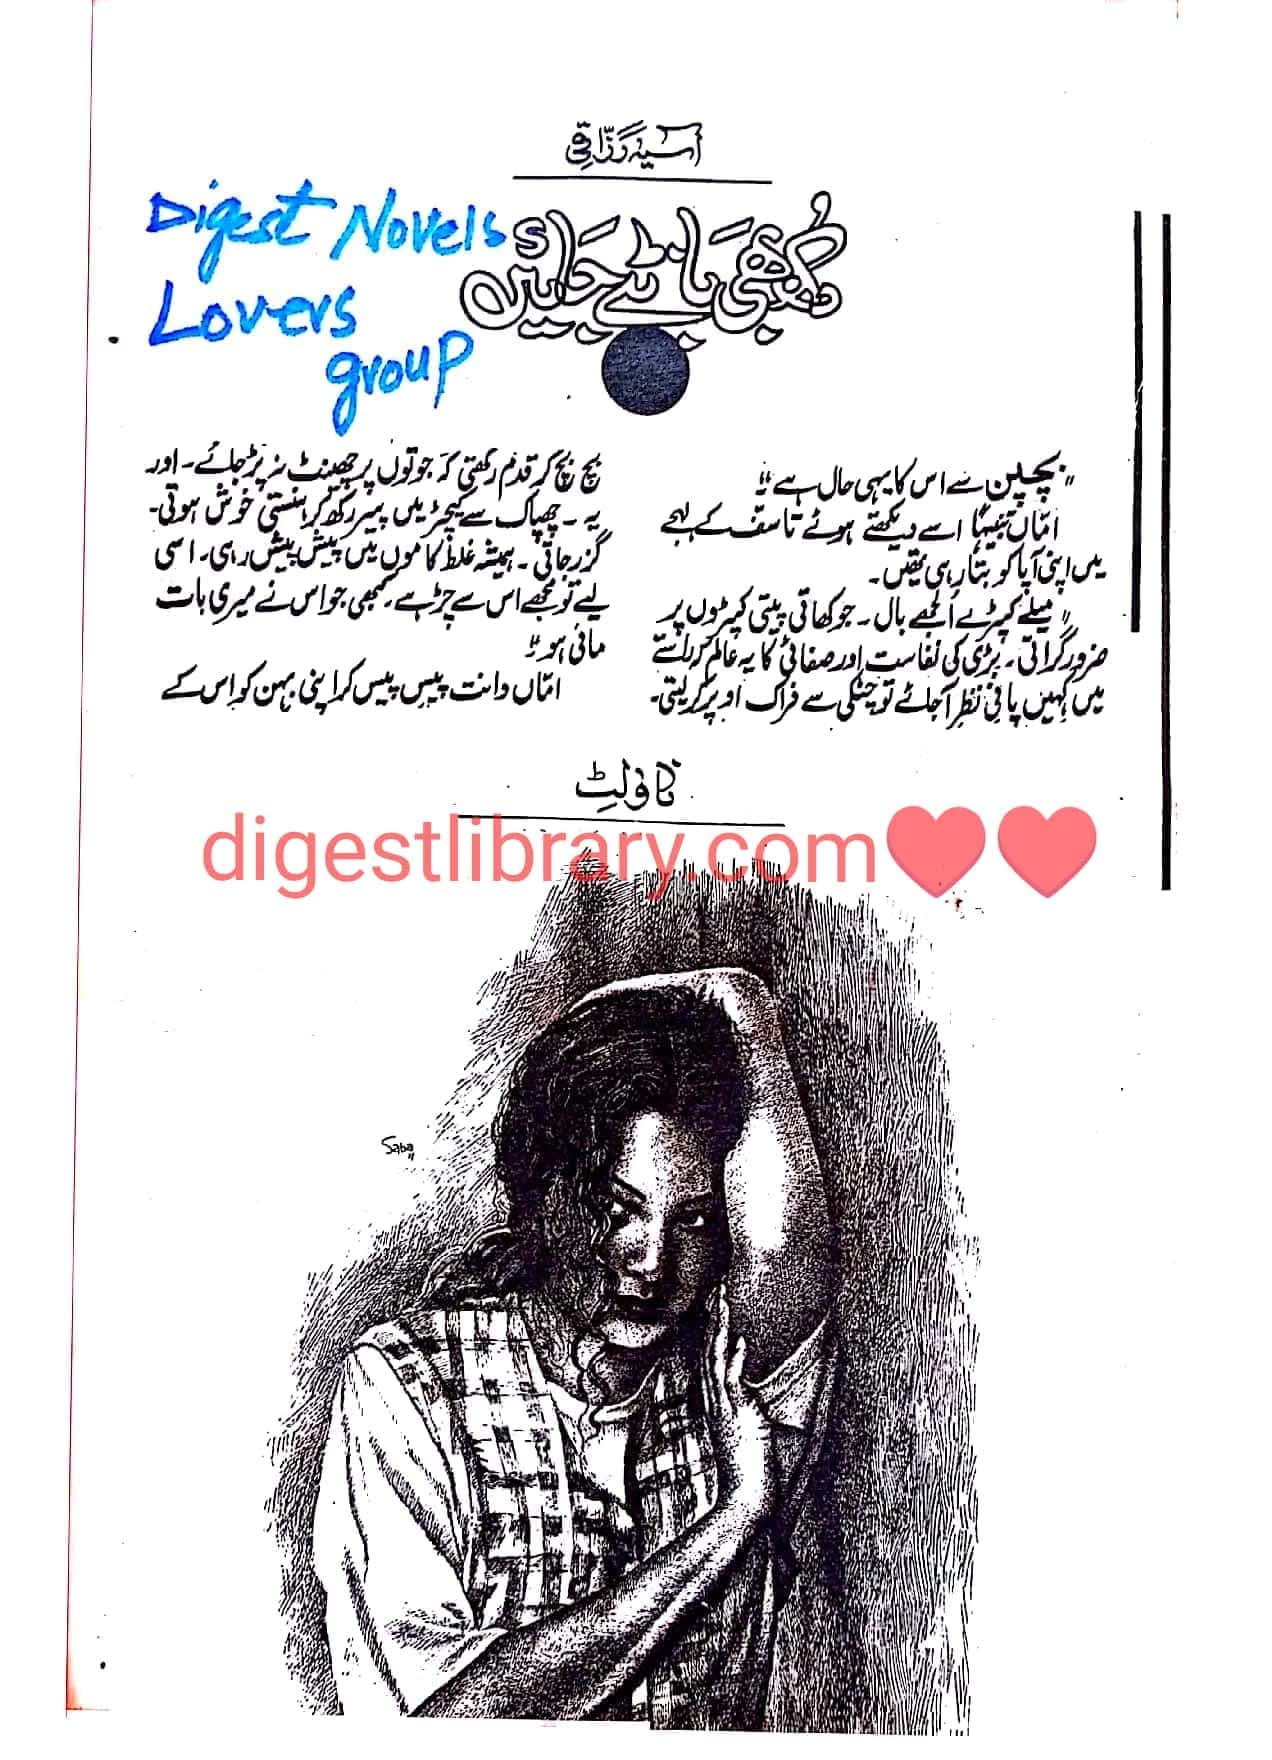 آسیہ رزاقی
دُکھ بھی بانٹے جائیں
Digest Novels
Lovers
group
"بچپن سے اس کا یہی حال ہے"
امّاں تنبیہاً اسے دیکھتے ہوئے تاسف کے لہجے
میں اپنی آپا کو بتا رہی تھیں۔
"میلے کپڑے اُلجھے بال۔ جو کھاتی پیتی کپڑوں پر
ضرور گراتی۔ بڑی کی نفاست اور صفائی کا یہ عالم کہ راستے
میں کہیں پانی نظر آجائے تو چٹکی سے فراک اوپر کر لیتی۔
بچ بچ کر قدم رکھتی کہ جوتوں پر چھینٹ نہ پڑ جائے۔ اور
یہ۔ چھپاک سے کیچڑ میں پیر رکھ کر ہنستی خوش ہوتی۔
گزر جاتی۔ ہمیشہ غلط کاموں میں پیش پیش رہی۔ اسی
لیے تو مجھے اس سے چڑ ہے۔ کبھی جو اس نے میری بات
مانی ہو"
امّاں دانت پیس پیس کر اپنی بہن کو اس کے
ناولٹ
digestlibrary.com❤❤
Saba